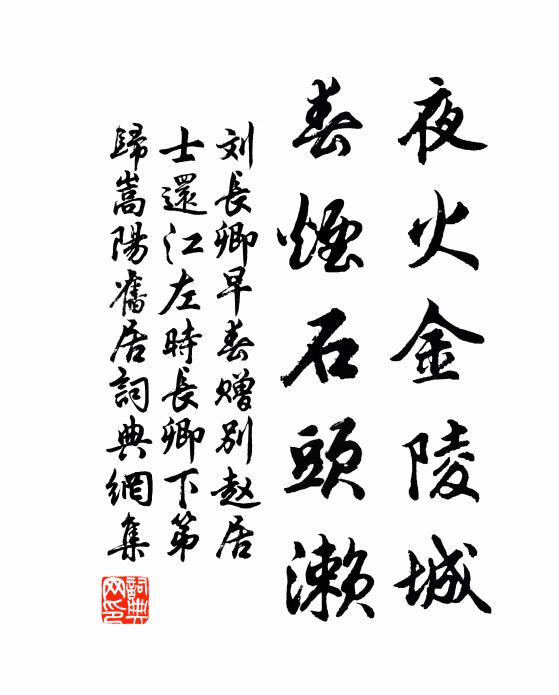 夜火金陵城
春煙石頭瀨
刘長卿早春赠别赵居
士還江左時長卿下第
歸嵩陽舊居詞典網集
詞典网印